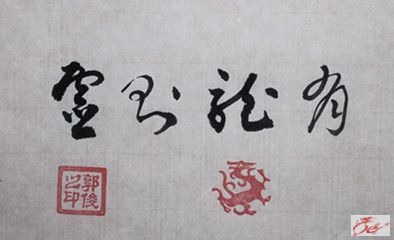 有龍則靈
郭俊之印